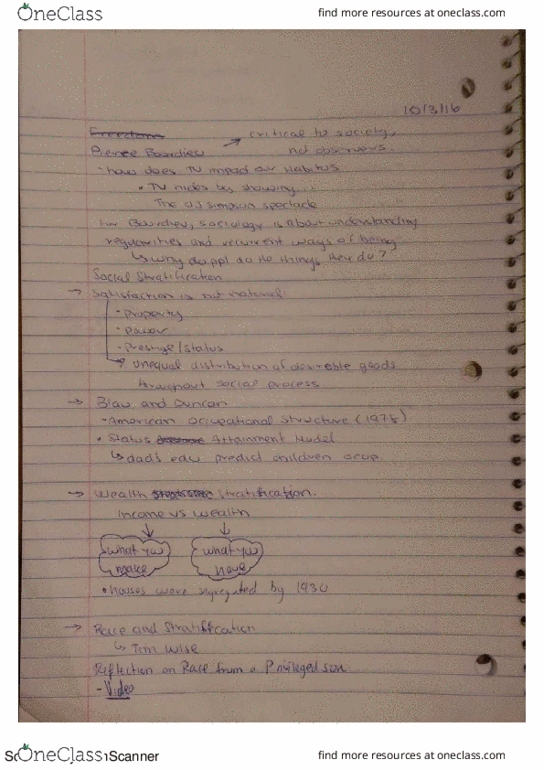 OneClass
find more resources at oneclass.com
10/3/16
Freedom
Pierre Bourdieu → critical to society,
not observers.
- how does TV impact our Habitus
• TV hides by showing...
The OJ Simpson spectacle
For Bourdieu, sociology is about understanding
regularities and recurrent ways of being
↳ why do ppl do the things they do?
Social Stratification
→ is not natural
• Property
• Power
• Prestige/Status
→ unequal distribution of desirable goods
throughout social process
→ Blau and Duncan
• American Occupational Structure (1978)
• Status Attainment Model
↳ dad's edu predict children occup.
→ Wealth Stratification.
Income vs wealth
what you make
what you have
• houses were segregated by 1930
→ Race and Stratification
↳ Tim Wise
Reflection on Race from a Privileged son
- Video
OneClass
Scanner
find more resources at oneclass.com